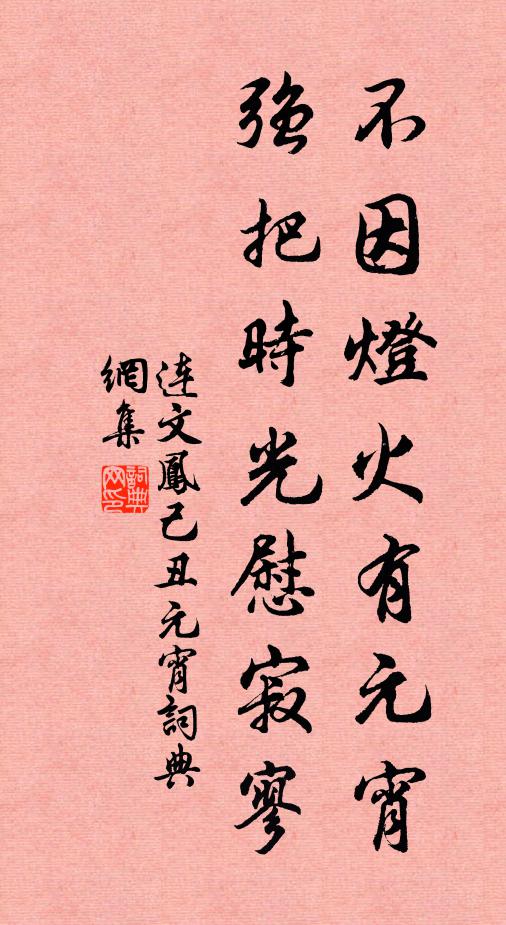 不因燈火有元宵
強把時光慰寂寥
連文鳳己丑元宵詞典
網集
詞典
网印